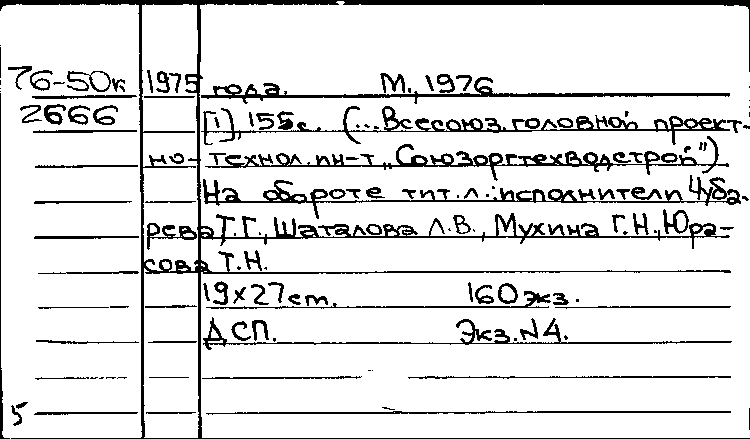 76-50к 1975 года. М., 1976
2666 [1], 155с. (...Всесоюз. головной проект-
но-технол. ин-т „Союзоргтехводстрой")
На обороте тит.л.: исполнители Чуба-
рева Т.Г., Шаталова Л.В., Мухина Г.Н., Юра-
сова Т.Н.
19х27cm. 160экз.
ДСП. Экз.N4.
5